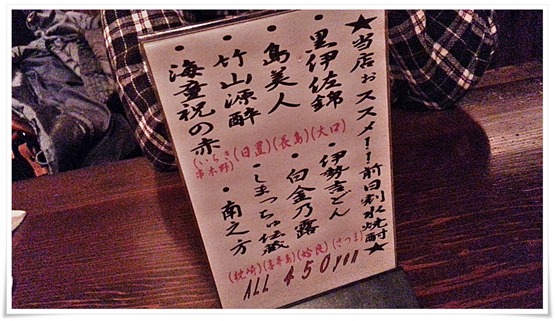 ★当店おススメ!!前日割水焼酎★
・黒伊佐錦
(大口)
・島美人
(長島)
・竹山源酔
(日置)
・海童祝の赤
(いちき
串木野)
・伊勢吉どん
(さつま)
・白金乃露
(姶良)
・しまっちゅ伝蔵
(喜界島)
・南之方
(枕崎)
ALL 450yen